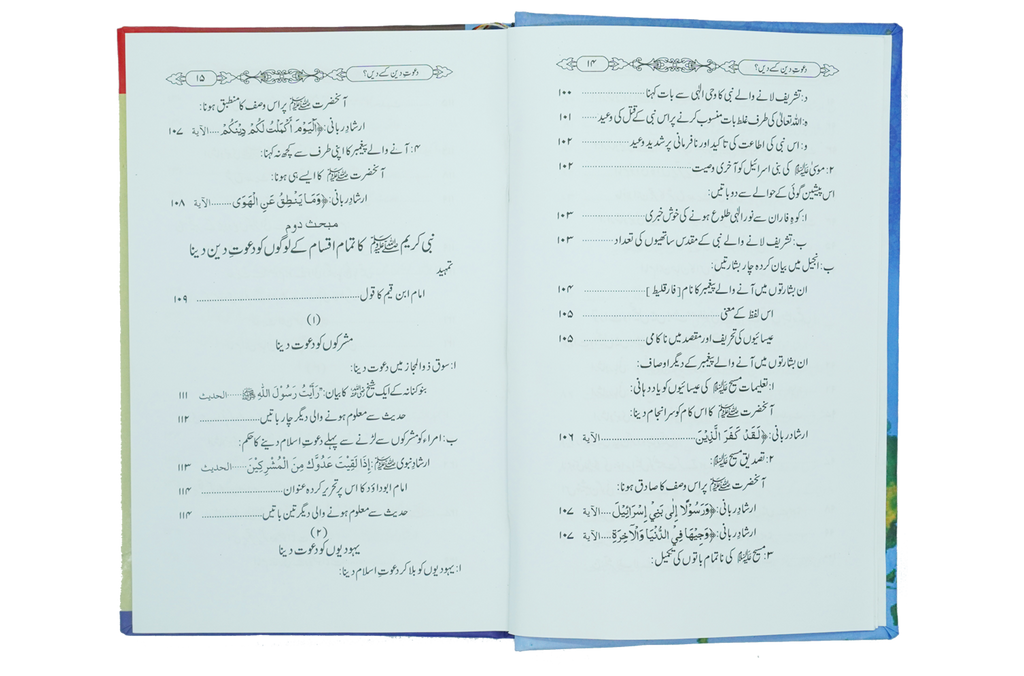 دعوتِ دین کسے دیں؟ ۱۴
د: تشریف لانے والے نبی کا وحی الٰہی سے بات کہنا ........ ۱۰۰
ہ: اللہ تعالیٰ کی طرف غلط بات منسوب کرنے پر اس نبی کے قتل کی وعید ۱۰۱
و: اس نبی کی اطاعت کی تاکید اور نافرمانی پر شدید وعید ........ ۱۰۲
۲: موسیٰ علیہ السلام کی بنی اسرائیل کو آخری وصیت ........ ۱۰۲
اس پیشین گوئی کے حوالے سے دو باتیں:
ا: کوہِ فاران سے نور الٰہی طلوع ہونے کی خوش خبری ........ ۱۰۳
ب: تشریف لانے والے نبی کے مقدس ساتھیوں کی تعداد ........ ۱۰۳
ب: انجیل میں بیان کردہ چار بشارتیں:
ان بشارتوں میں آنے والے پیغمبر کا نام [فارقلیط] ........ ۱۰۴
اس لفظ کے معنی ........ ۱۰۵
عیسائیوں کی تحریف اور مقصد میں ناکامی ........ ۱۰۵
ان بشارتوں میں آنے والے پیغمبر کے دیگر اوصاف:
ا: تعلیمات مسیح علیہ السلام کی عیسائیوں کو یاد دہانی:
آنحضرت ﷺ کا اس کام کو سرانجام دینا:
ارشادِ ربانی: ﴿لَقَدْ كَفَرَ الَّذِيْنَ....الآية ۱۰۶
۲: تصدیق مسیح علیہ السلام:
آنحضرت ﷺ پر اس وصف کا صادق ہونا:
ارشادِ ربانی: ﴿وَرَسُوْلًا إِلٰى بَنِيْ إِسْرَائِيْلَ....الآية ۱۰۷
ارشادِ ربانی: ﴿وَجِيْهًا فِي الدُّنْيَا وَالْآخِرَةِ....الآية ۱۰۷
۳: مسیح علیہ السلام کی ناتمام باتوں کی تکمیل:
دعوتِ دین کسے دیں؟ ۱۵
آنحضرت ﷺ پر اس وصف کا منطبق ہونا:
ارشادِ ربانی: ﴿اَلْيَوْمَ أَكْمَلْتُ لَكُمْ دِيْنَكُمْ....الآية ۱۰۷
۴: آنے والے پیغمبر کا اپنی طرف سے کچھ نہ کہنا:
آنحضرت ﷺ کا ایسے ہی ہونا:
ارشادِ ربانی: ﴿وَمَا يَنْطِقُ عَنِ الْهَوَى....الآية ۱۰۸
مبحث دوم
نبی کریم ﷺ کا تمام اقسام کے لوگوں کو دعوتِ دین دینا
تمہید
امام ابن قیم کا قول ........ ۱۰۹
(۱)
مشرکوں کو دعوت دینا
ا: سوق ذوالمجاز میں دعوت دینا:
بنو کنانہ کے ایک شیخ رضی اللہ عنہ کا بیان: "رَأَيْتُ رَسُوْلَ اللّٰهِ ﷺ....الحديث ۱۱۱
حدیث سے معلوم ہونے والی دیگر چار باتیں ........ ۱۱۲
ب: امراء کو مشرکوں سے لڑنے سے پہلے دعوتِ اسلام دینے کا حکم:
ارشادِ نبوی ﷺ: إِذَا لَقِيْتَ عَدُوَّكَ مِنَ الْمُشْرِكِيْنَ....الحديث ۱۱۳
امام ابوداؤد کا اس پر تحریر کردہ عنوان ........ ۱۱۴
حدیث سے معلوم ہونے والی دیگر تین باتیں ........ ۱۱۴
(۲)
یہودیوں کو دعوت دینا
ا: یہودیوں کو بلا کر دعوتِ اسلام دینا: